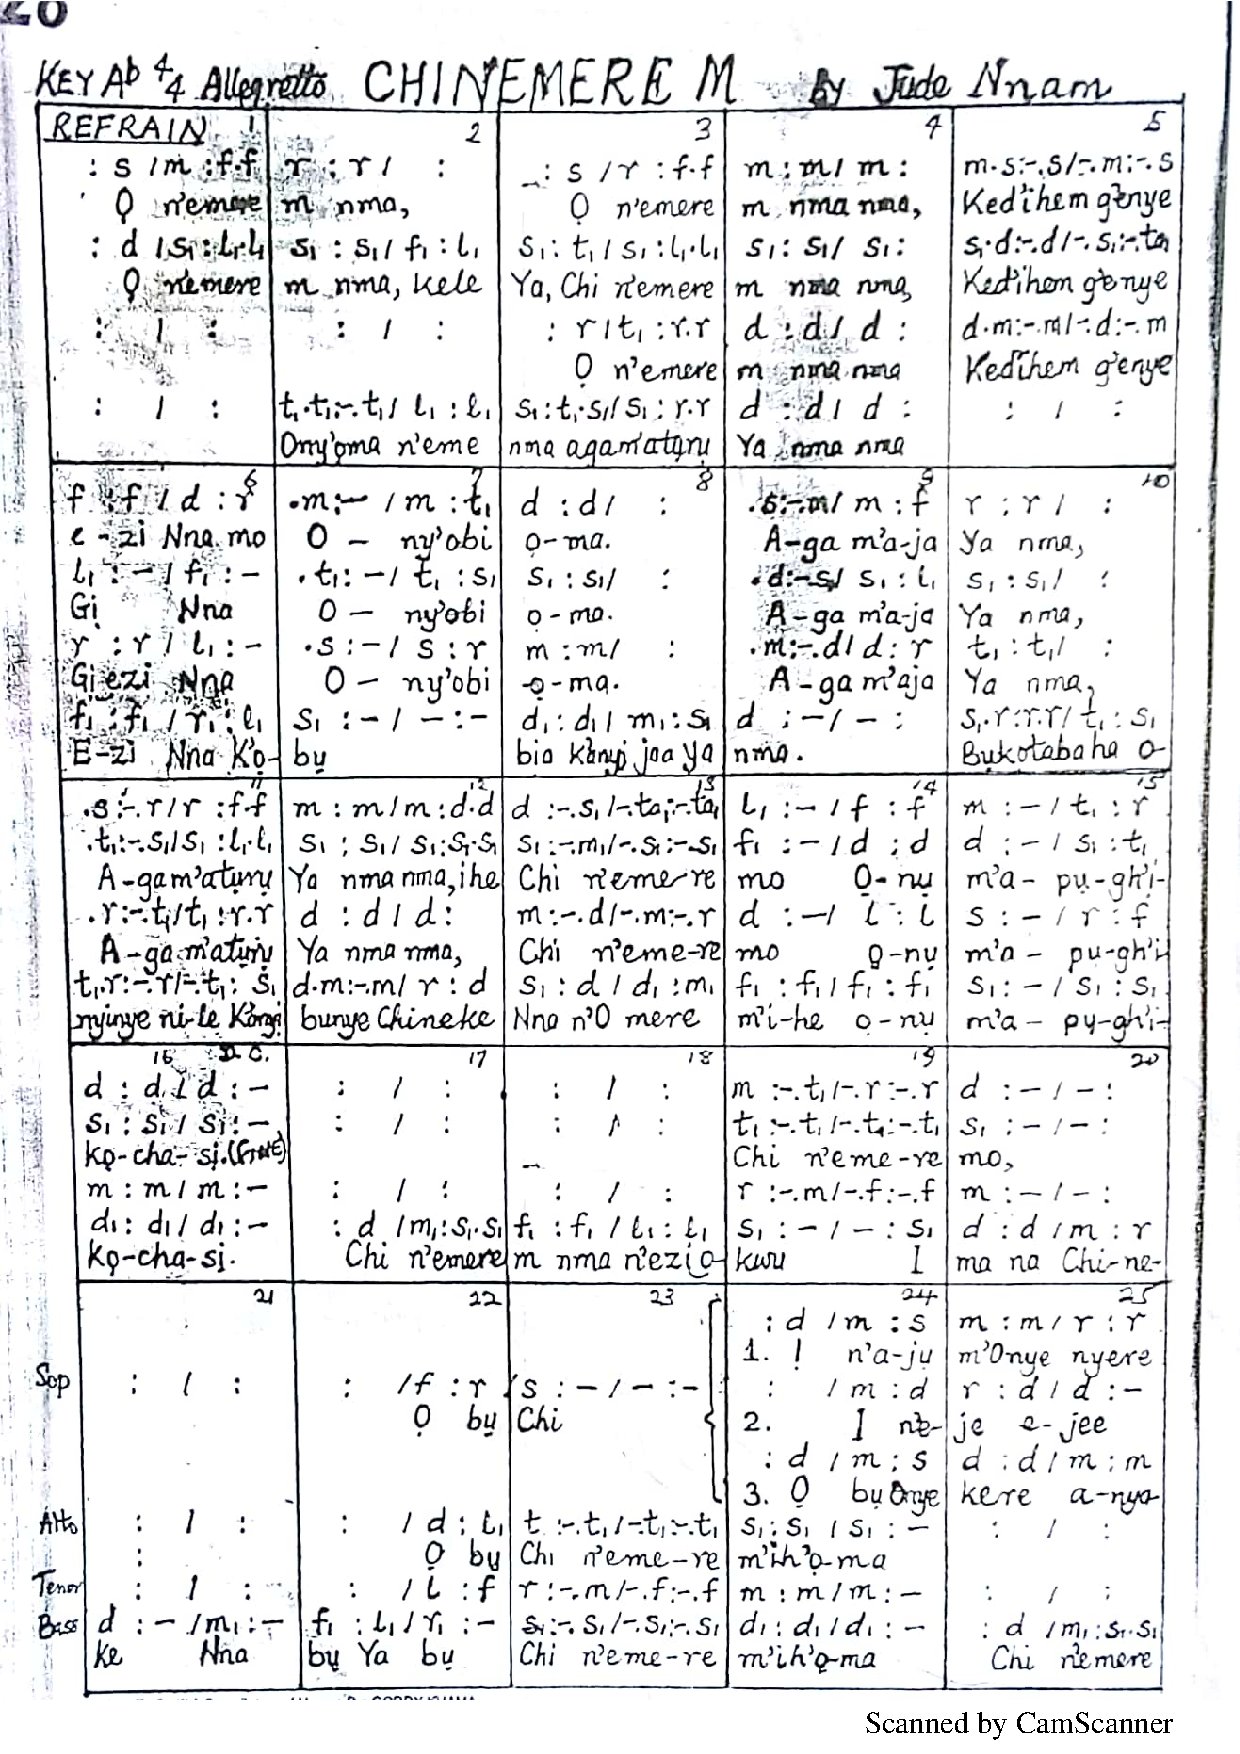 20
KEY Ab 4/4 Allegretto CHINEMERE M By Jude Nnam
REFRAIN 1 2 3 4 5
: s /m :f.f r : r / : _: s /r : f.f m : m/ m : m.s:-.s/-.m:-.s
Ọ n'emere m nma, Ọ n'emere m nma nma, Ked'ihem g'enye
: d /s₁ : l₁.l₁ s₁ : s₁/ f₁ : l₁ s₁ : t₁ / s₁ : l₁.l₁ s₁ : s₁/ s₁ : s₁.d:-.d/-.s₁:-.ta₁
Ọ n'emere m nma, kele Ya, Chi n'emere m nma nma, Ked'ihem g'enye
: / : : / : : r / t₁ : r.r d : d / d : d.m:-.m/-.d:-.m
Ọ n'emere m nma nma Ked'ihem g'enye
: / : t₁.t₁:-.t₁/ l₁ : l₁ s₁ : t₁.s₁/ s₁ : r.r d : d / d : : / :
Ony'ọma n'eme nma agam'atụrụ Ya nma nma
6 7 8 9 10
f : f / d : r .m:- / m : t₁ d : d / : .s:-.m/ m : f r : r / :
e - zi Nna mo O - ny'obi ọ-ma. A-ga m'a-ja Ya nma,
l₁ : - / f₁ : - .t₁ : - / t₁ : s₁ s₁ : s₁/ : .d:-.s₁/ s₁ : l₁ s₁ : s₁/ :
Gị Nna O - ny'obi ọ-ma. A-ga m'a-ja Ya nma,
r : r / l₁ : - .s : - / s : r m : m/ : .m:-.d/ d : r t₁ : t₁/ :
Gị ezi Nna O - ny'obi ọ-ma. A-ga m'aja Ya nma,
f₁ : f₁ / r₁ : l₁ s₁ : - / - : - d₁ : d₁ / m₁ : s₁ d : - / - : s₁.r:r.r/ t₁ : s₁
E-zi Nna Kọ- bụ bia Kanyị jaa ya nma. Bukotabaha O-
11 12 13 14 15
.s:-.r/ r : f.f m : m / m : d.d d :-.s₁/-.ta₁:-.ta₁ l₁ : - / f : f m : - / t₁ : r
.t₁:-.s₁/s₁ : l₁.l₁ s₁ : s₁/ s₁:s₁.s₁ s₁:-.m₁/-.s₁:-.s₁ f₁ : - / d : d d : - / s₁ : t₁
A-gam'atụrụ Ya nma nma, ihe Chi n'eme-re mo Ọ-nụ m'a- pụ-gh'i-
.r:-.t₁/t₁ : r.r d : d / d : m:-.d/-.m:-.r d : - / l : l s : - / r : f
A-ga m'atụrụ Ya nma nma, Chi n'eme-re mo Ọ-nụ m'a- pu-gh'i-
t₁.r:-.r/-.t₁ : s₁ d.m:-.m/ r : d s₁ : d / d₁ : m₁ f₁ : f₁ / f₁ : f₁ s₁ : - / s₁ : s₁
nyinye ni-le Kanyi bunye Chineke Nna n'O mere m'i-he ọ-nụ m'a- pụ-gh'i-
16 D.C. 17 18 19 20
d : d / d : - : / : : / : m :-.t₁/-.r:-.r d : - / - :
s₁ : s₁ / s₁ : - : / : : / : t₁:-.t₁/-.t₁:-.t₁ s₁ : - / - :
kọ-cha-sị. Chi n'eme-re mo,
m : m / m : - : / : : / : r :-.m/-.f:-.f m : - / - :
d₁ : d₁/ d₁ : - : d /m₁:s₁.s₁ f₁ : f₁ / l₁ : l₁ s₁ : - / - : s₁ d : d / m : r
kọ-cha-sị. Chi n'emere m nma n'ezi o- kwu I ma na Chi-ne-
21 22 23 24 25
: d / m : s m : m / r : r
1. I n'a-jụ m'Onye nyere
Sop : / : : /f : r s : - / - : - : / m : d r : d / d : -
Ọ bụ Chi 2. I ne- je e-jee
: d / m : s d : d / m : m
3. Ọ bụ Onye kere a-nya-
Alto : / : : / d : l₁ t :-.t₁/-.t₁:-.t₁ s₁ : s₁ / s₁ : - : / :
: Ọ bụ Chi n'eme-re m'ih'ọ-ma
Tenor : / : : / l : f r :-.m/-.f:-.f m : m / m : - : / :
Bass d : - /m₁ : - f₁ : l₁ / r₁ : - s₁:-.s₁/-.s₁:-.s₁ d₁ : d₁ / d₁ : - : d /m₁:s₁.s₁
ke Nna bụ Ya bụ Chi n'eme-re m'ih'ọ-ma Chi n'emere
Scanned by CamScanner